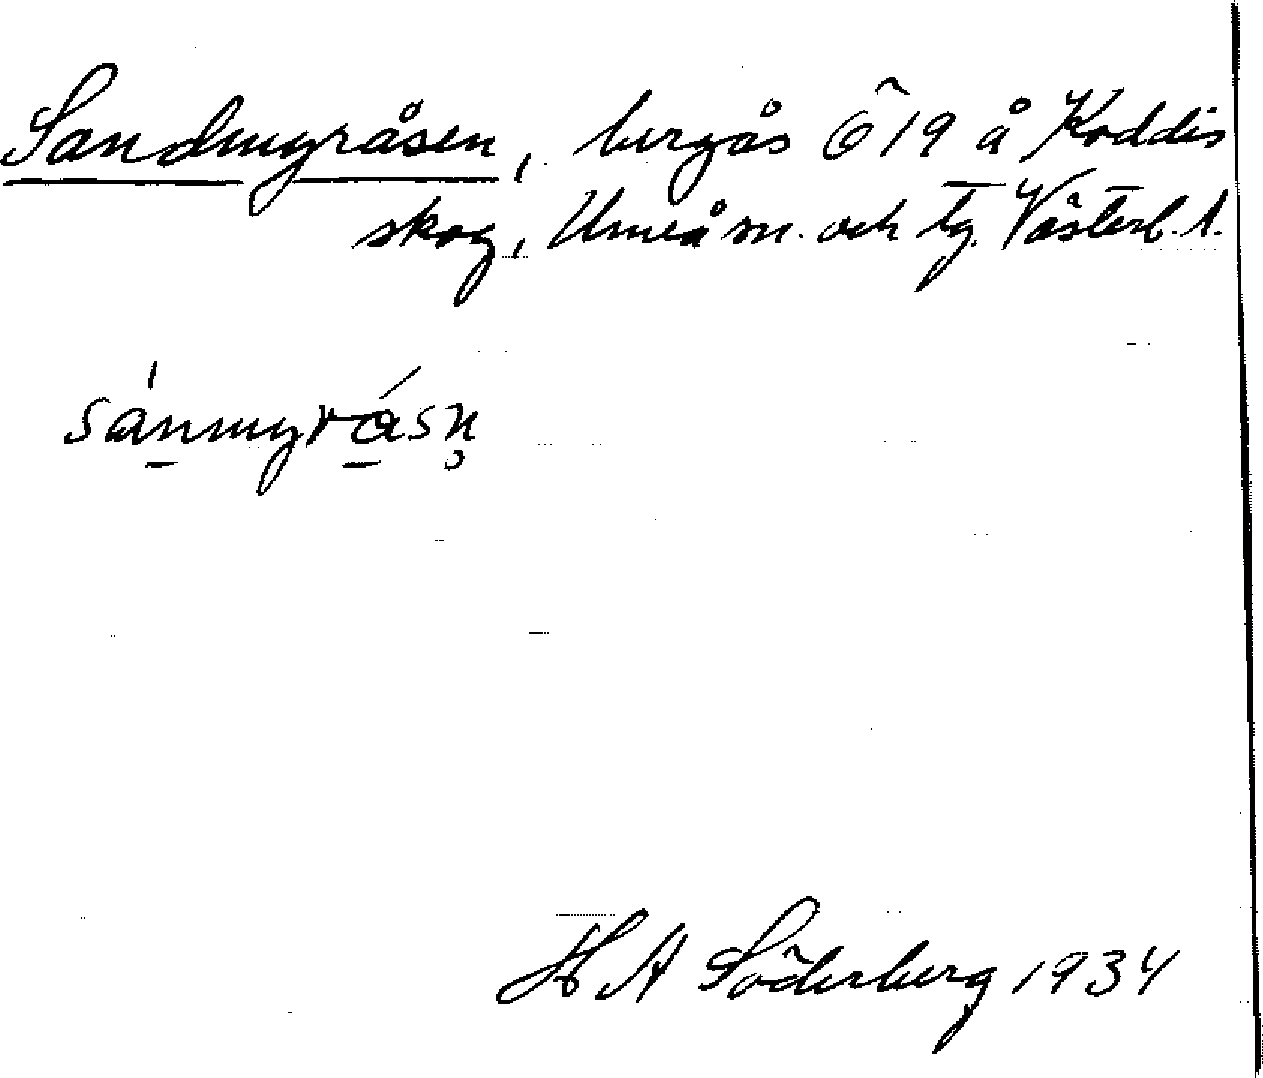 Sandmyråsen, bergås Ö 19 å Koddis
skog, Umeå sn. och tg. Västerb. l.
sánmyrásn̥
H A Söderberg 1934